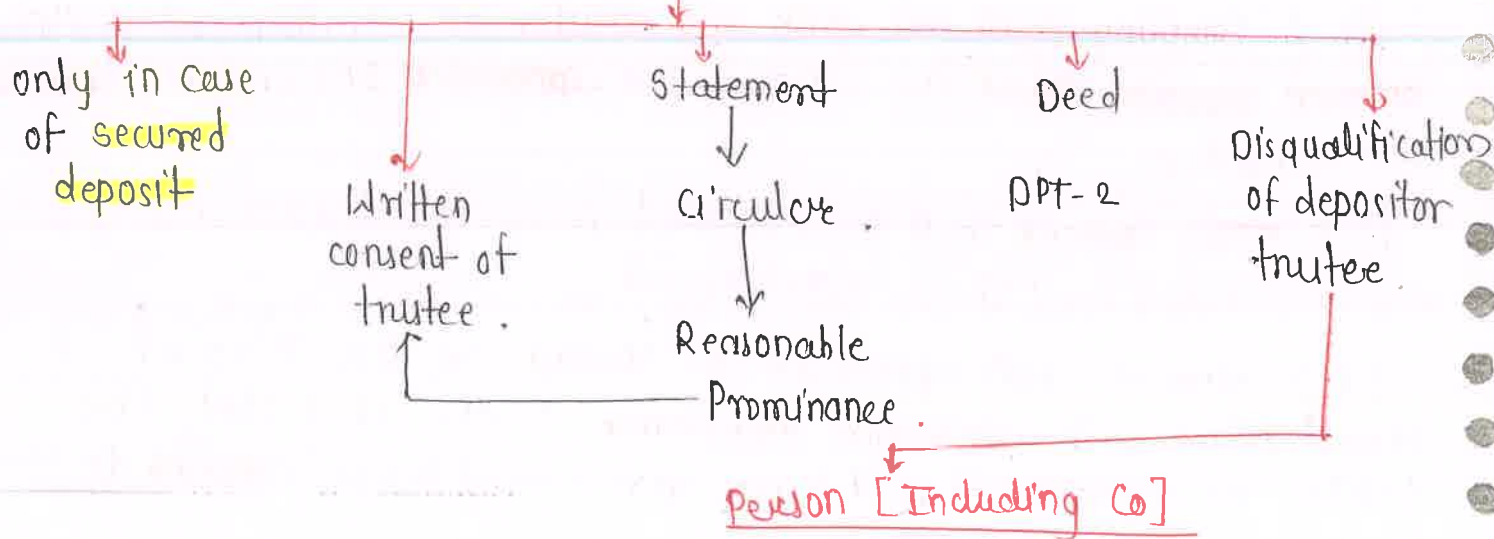 only in case
of secured
deposit
Written
consent of
trutee .
Statement
Circular .
Reasonable
Prominance .
Deed
DPT-2
Disqualification
of depositor
trutee .
Person [Including Co]